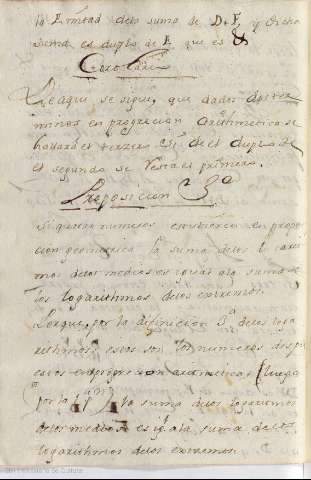 la mitad dela suma de D.F, y dicha
suma es dupla de E que es
Corolario
De aqui se sigue, que dados dos ter
minos en progrecion Arithmetica se
hallará el tercero si del duplo de
el segundo se resta el primero.
Proposicion 3ª
Si quatro numeros estubieren en propor
cion geometrica la suma delos logarit
mos delos medios es igual ala suma de
los logarithmos delos extremos.
Porque, por la difinicion 3ª delos loga
rithmos estos son los numeros dispu
estos en progrecion arithmetica luego
por la la suma delos logaritmos
delos medios es igl ala suma delos
logarithmos delos extremos.